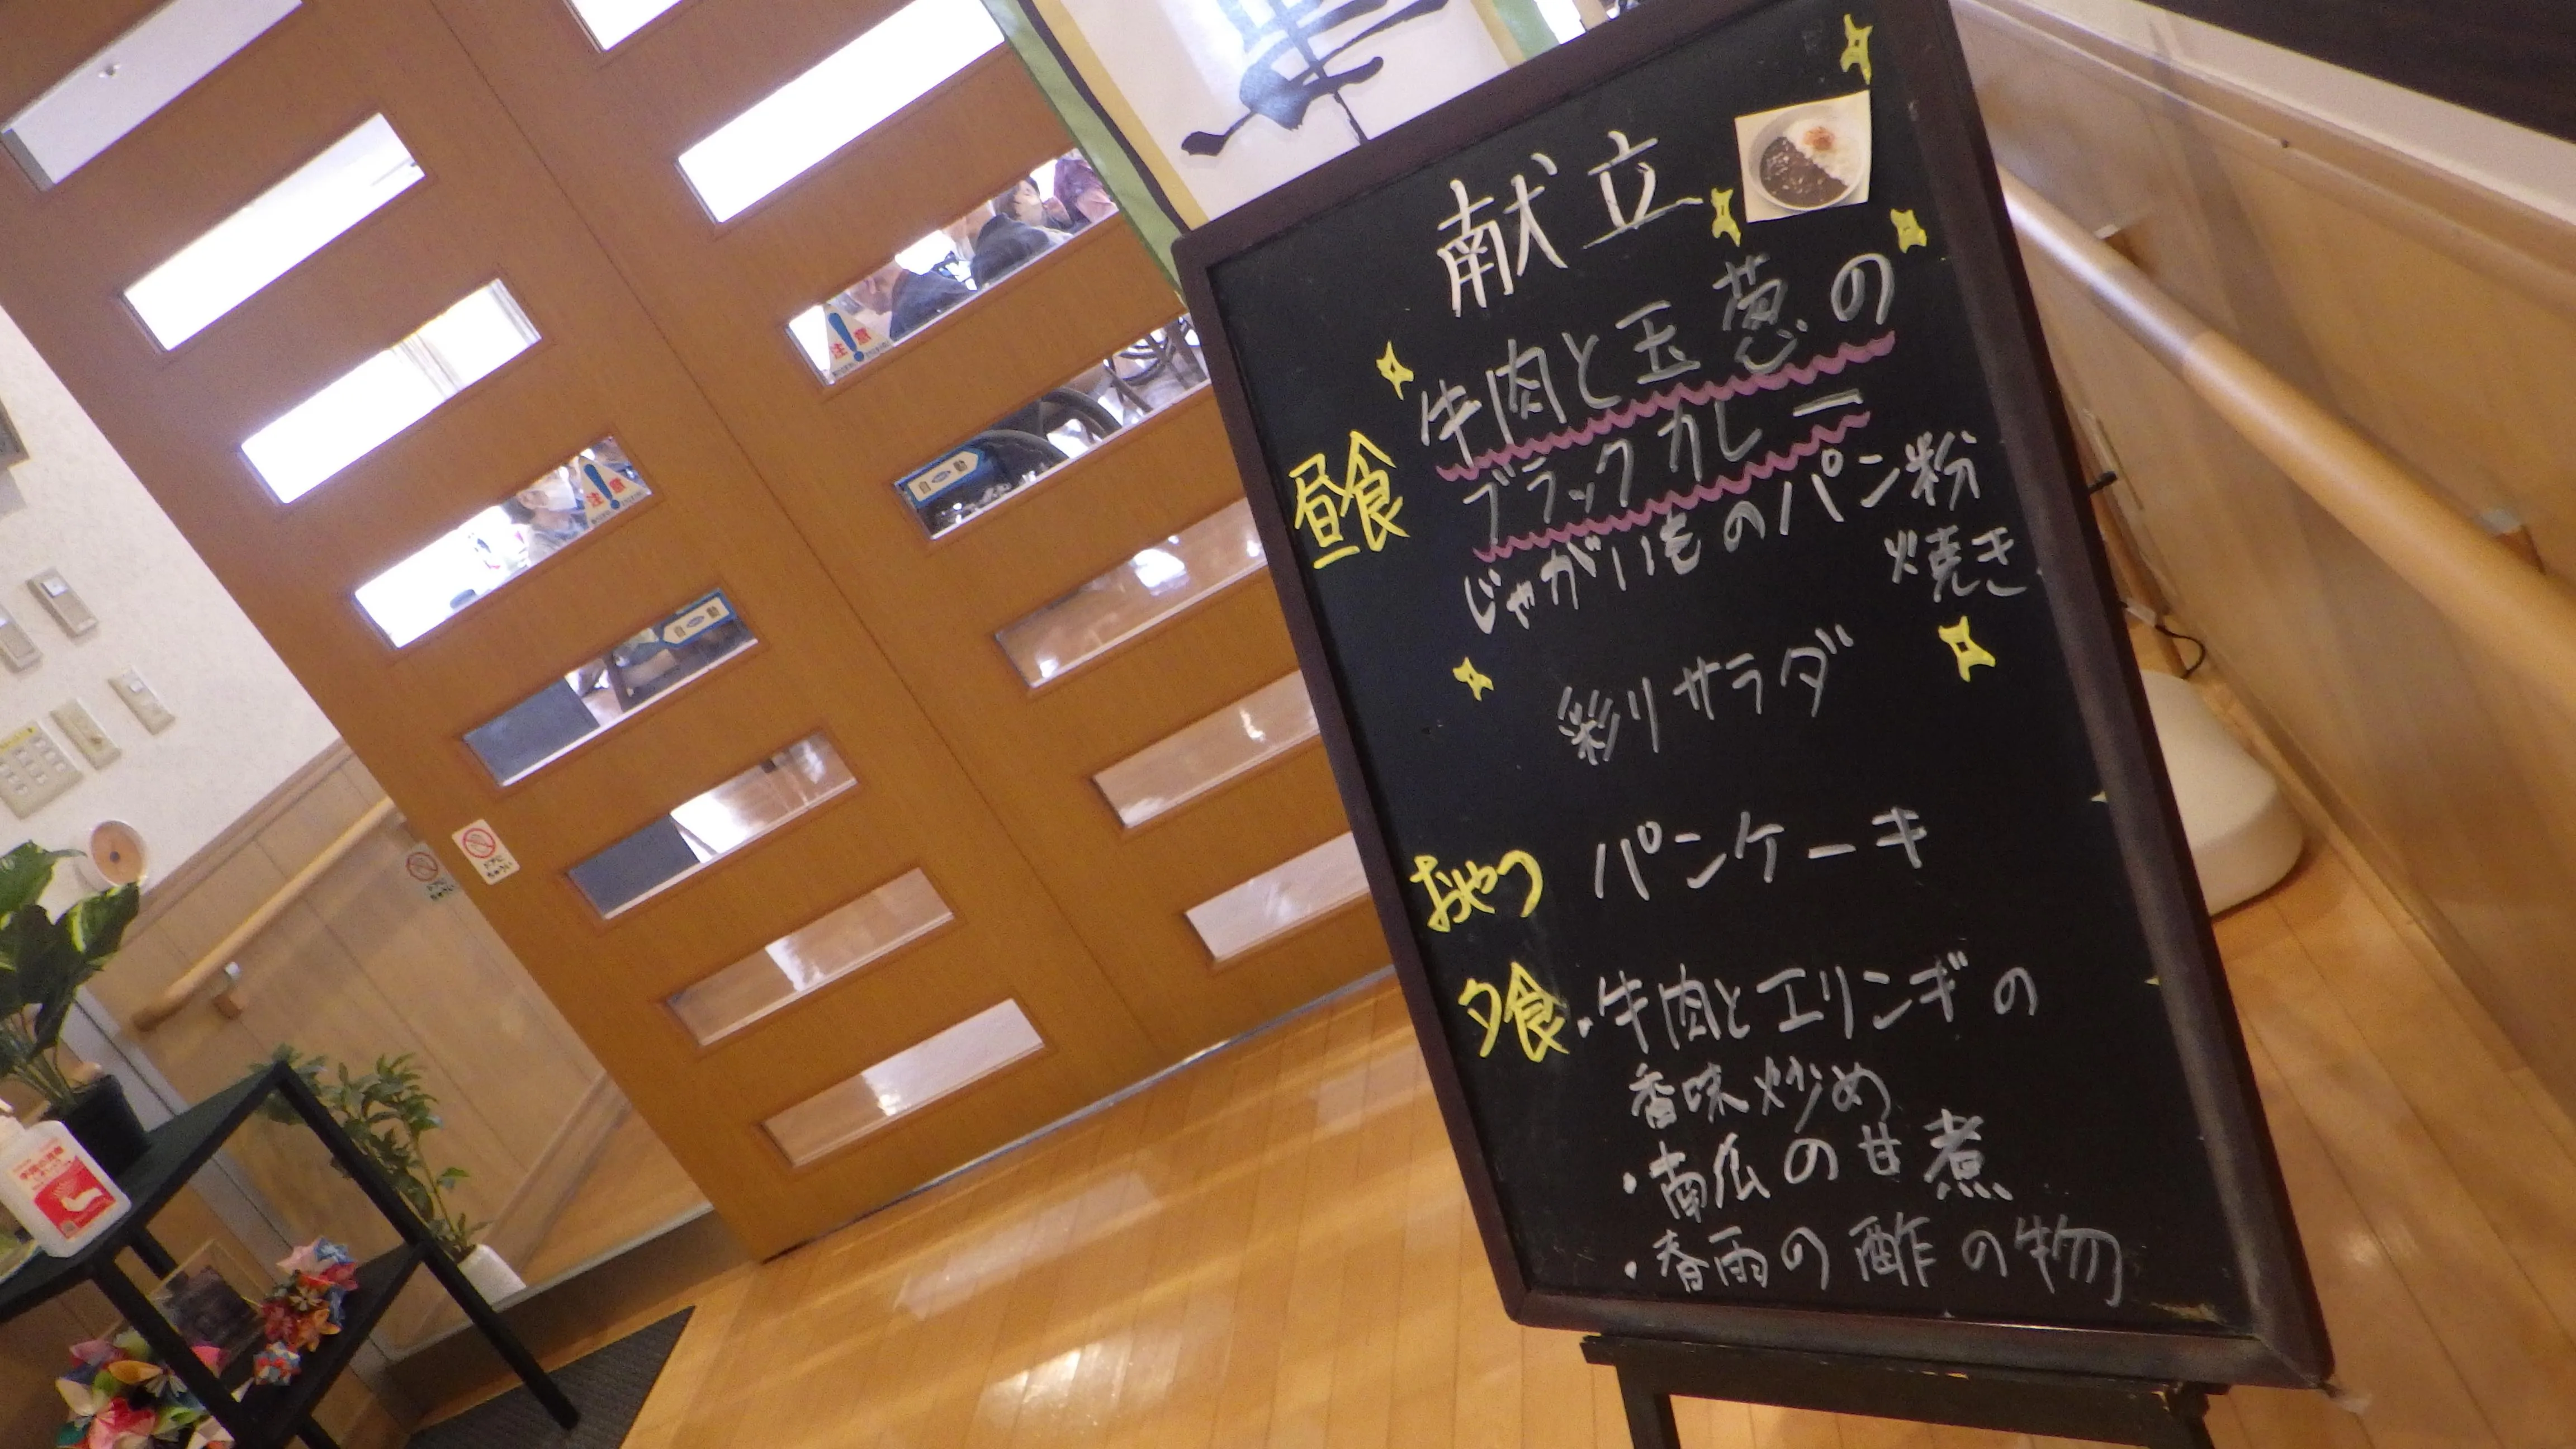 献立
昼食
牛肉と玉葱の
ブラックカレー
じゃがいものパン粉
焼き
彩りサラダ
おやつ
パンケーキ
夕食
・牛肉とエリンギの
香味炒め
・南瓜の甘煮
・春雨の酢の物
注意
自動
注意
自動